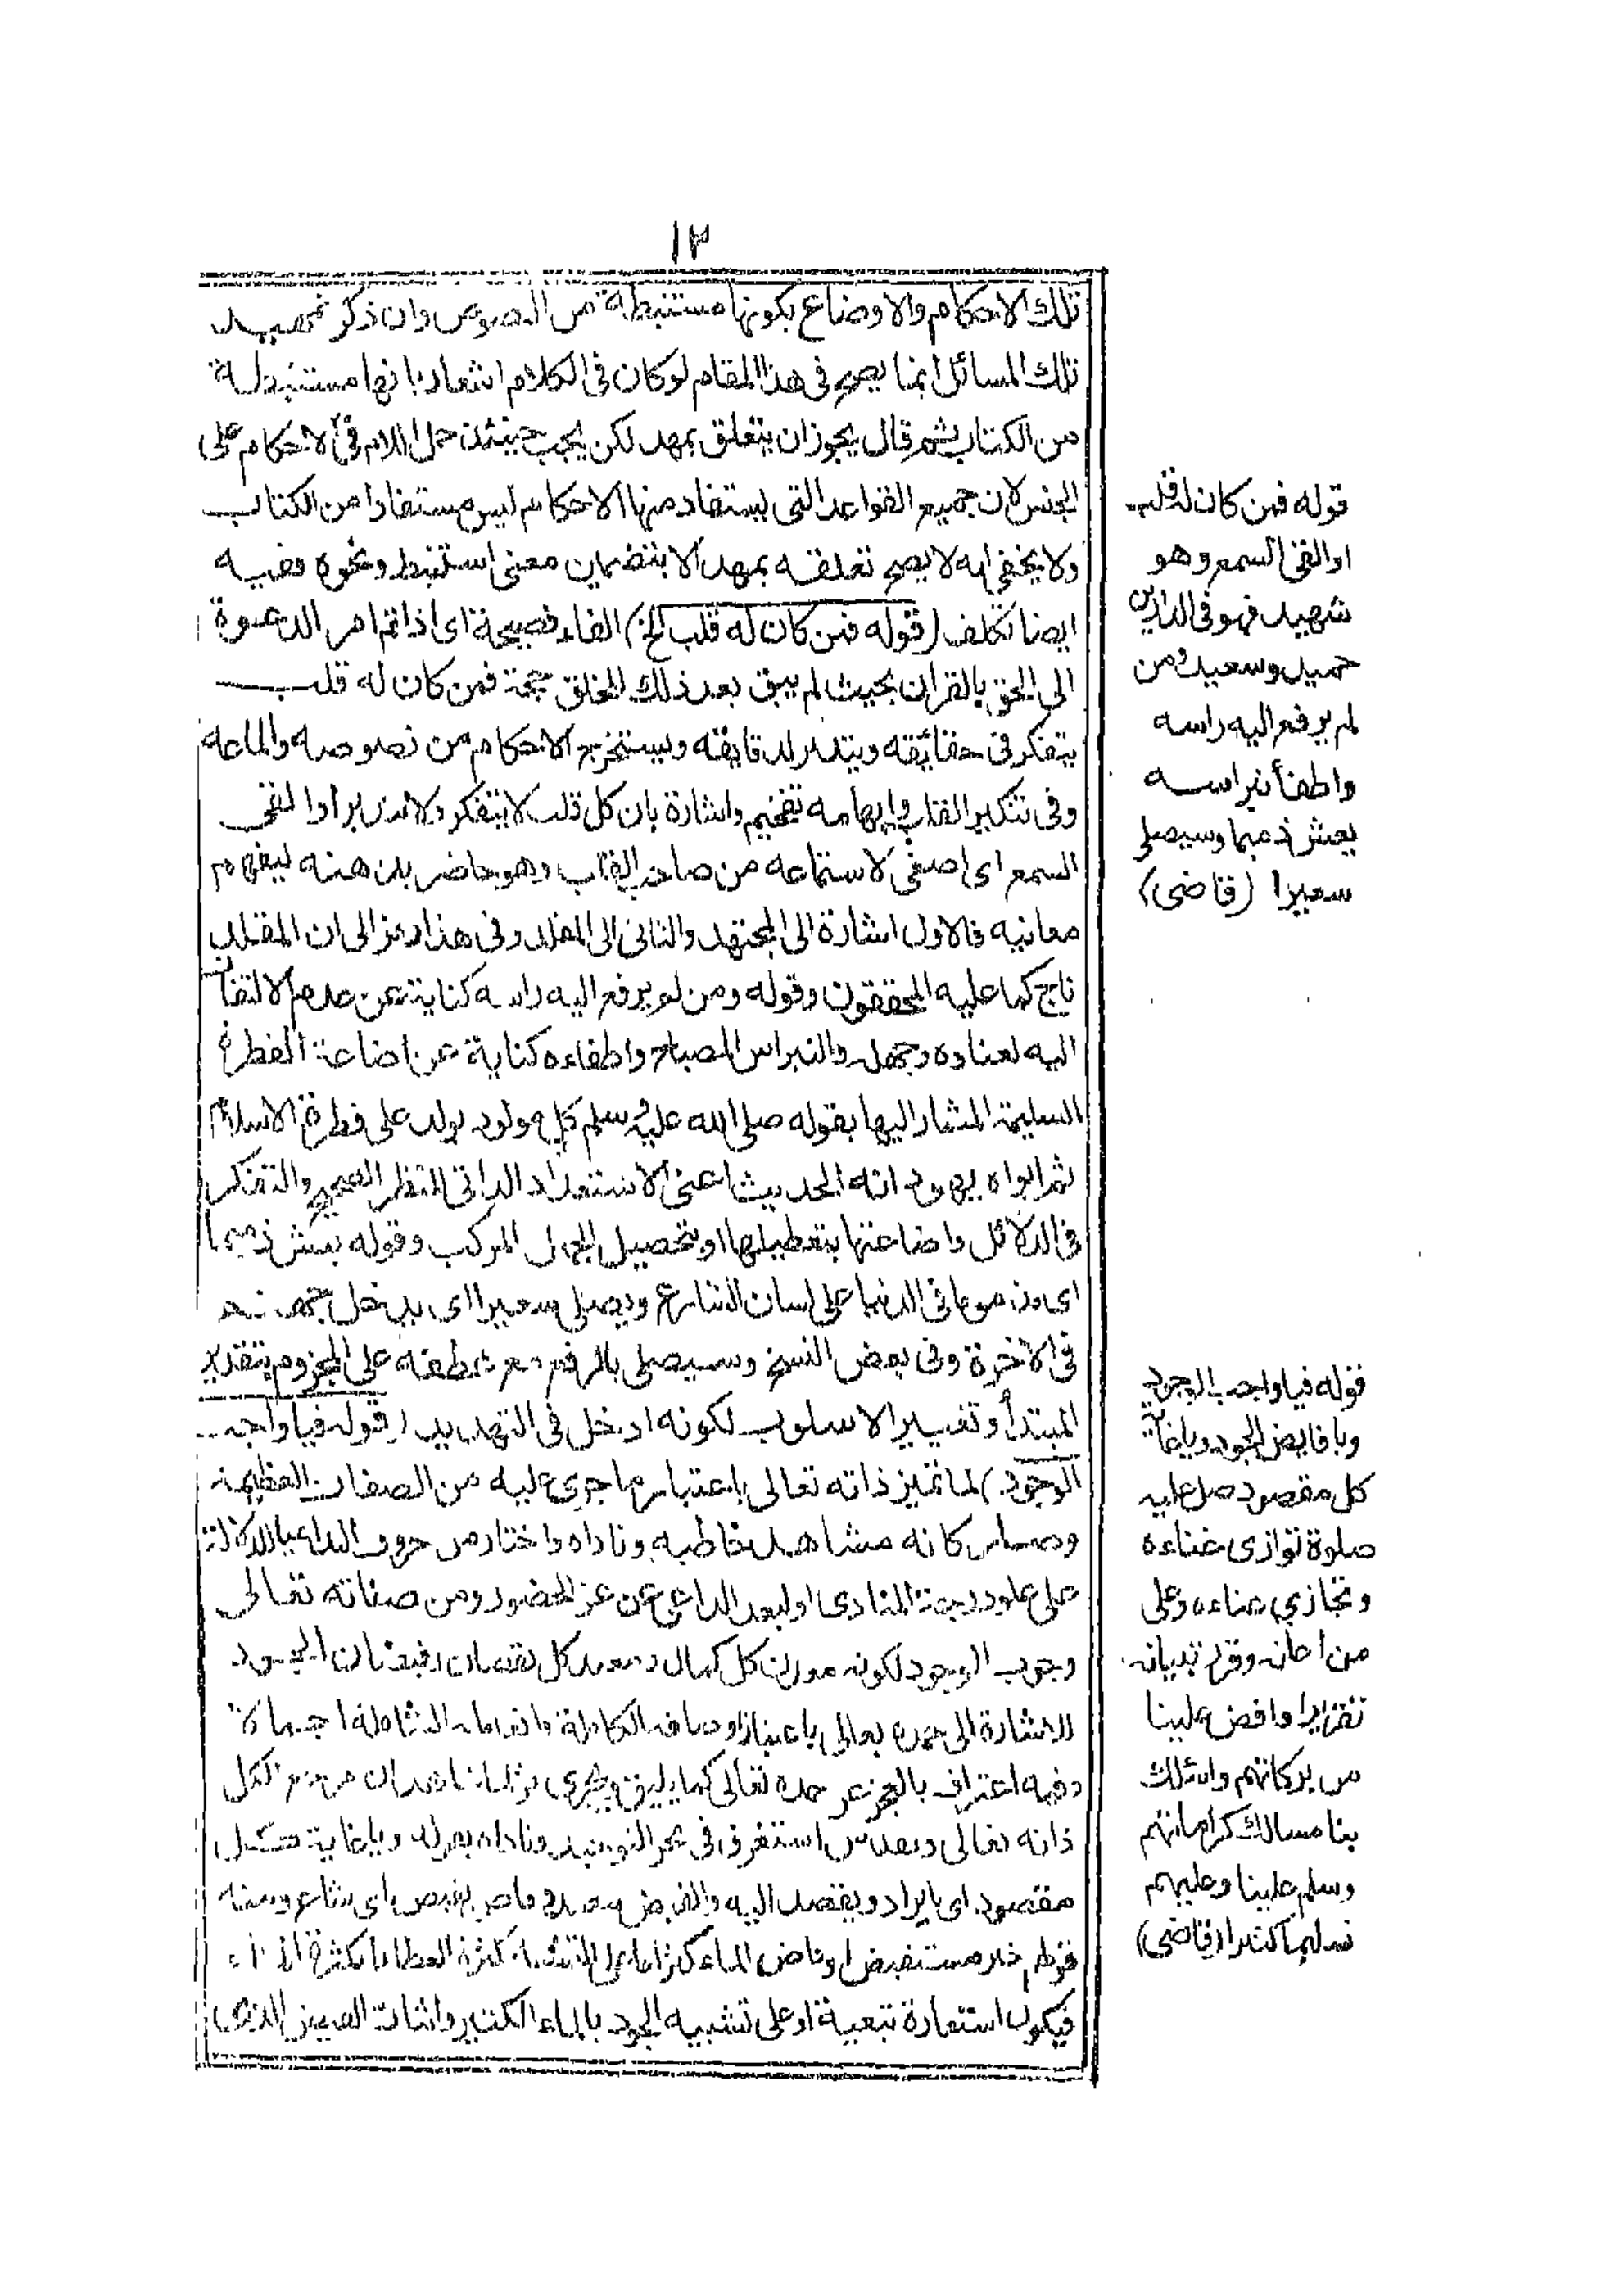 ١٢
تلك الاحكام والاوضاع بكونها مستنبطة من النصوص وان ذكر تمهيد
تلك المسائل انما يصح فى هذا المقام لو كان فى الكلام اشعار بانها مستنبطة
من الكتاب ثم قال يجوز ان يتعلق بمهد لكن يجب حينئذ حمل اللام فى الاحكام على
الجنس لان جميع القواعد التى يستفاد منها الاحكام ليس مستفادا من الكتاب
ولا يخفى انه لا يصح تعلقه بمهد الا بتضمين معنى استنبط ونحوه وفيه
ايضا تكلف (قوله فمن كان له قلب الخ) الفاء فصيحة اى اذا تم امر الدعوة
الى الحق بالقرآن بحيث لم يبق بعد ذلك للخلق حجة فمن كان له قلب
يتفكر فى حقائقه ويتدبر لدقايقه ويستخرج الاحكام من نصوصه والماعه
وفى تنكير القلب وابهامه تفخيم واشارة بان كل قلب لا يتفكر ولا يتدبر او القى
السمع اى اصغى لاستماعه من صاحب القلب وهو حاضر بذهنه ليفهم
معانيه فالاول اشارة الى المجتهد والثانى الى المقلد وفى هذا رمز الى ان المقلد
ناج كما عليه المحققون وقوله ومن لم يرفع اليه راسه كناية عن عدم الالتفات
اليه لعناده وجهله والنبراس المصباح واطفاءه كناية عن اضاعة الفطرة
السليمة المشار اليها بقوله صلى الله عليه وسلم كل مولود يولد على فطرة الاسلام
ثم ابواه يهودانه الحديث اعنى الاستعداد الذاتى للنظر الصحيح والتفكر
فى الدلائل واضاعتها بتعطيلها او بتحصيل الجهل المركب وقوله يعش ذميما
اى مذموما فى الدنيا على لسان الشارع ويصلى سعيرا اى يدخل جهنم
فى الاخرة وفى بعض النسخ وسيصلى بالرفع مع عطفه على المجزوم بتقدير
المبتدأ وتغيير الاسلوب لكونه ادخل فى التهديد (قوله فيا واجب
الوجود) لما تميز ذاته تعالى باعتبار ما جرى عليه من الصفات العظيمة
وصار كانه مشاهد خاطبه وناداه واختار من حروف النداء يا الدلالة
على علو درجة المنادى او لبعد الداعى عن عز الحضور ومن صفاته تعالى
وجوب الوجود لكونه معدن كل كمال ومبعد كل نقصان
للاشارة الى حمده تعالى باعتبار اوصافه الكاملة الشاملة اجمالا
وفيه اعتراف بالعجز عن حمده تعالى كما يليق
ذاته تعالى استغرق فى بحر التوحيد وناداه وياغاية كل
مقصود اى ما يراد ويقصد اليه والفيض فاض يفيض اى شاع ومنه
قولهم خبر مستفيض او فاض الماء كثر كثرة العطايا بكثرة
فيكون استعارة تبعية او على تشبيه الجود بالماء الكثير واثبات الفيض الذى
قوله فمن كان له قلب
او القى السمع وهو
شهيد فهو فى الدارين
حميد وسعيد ومن
لم يرفع اليه راسه
واطفأ نبراسه
يعش ذميما وسيصلى
سعيرا (قاضى)
قوله فيا واجب الوجود
ويا فايض الجود وياغاية
كل مقصود صل عليه
صلوة توازى غناءه
وتجازى عناءه وعلى
من اعانه وقرر تبيانه
تقريرا وافض علينا
من بركاتهم واسلك
بنا مسالك كراماتهم
وسلم علينا وعليهم
تسليما كثيرا (قاضى)